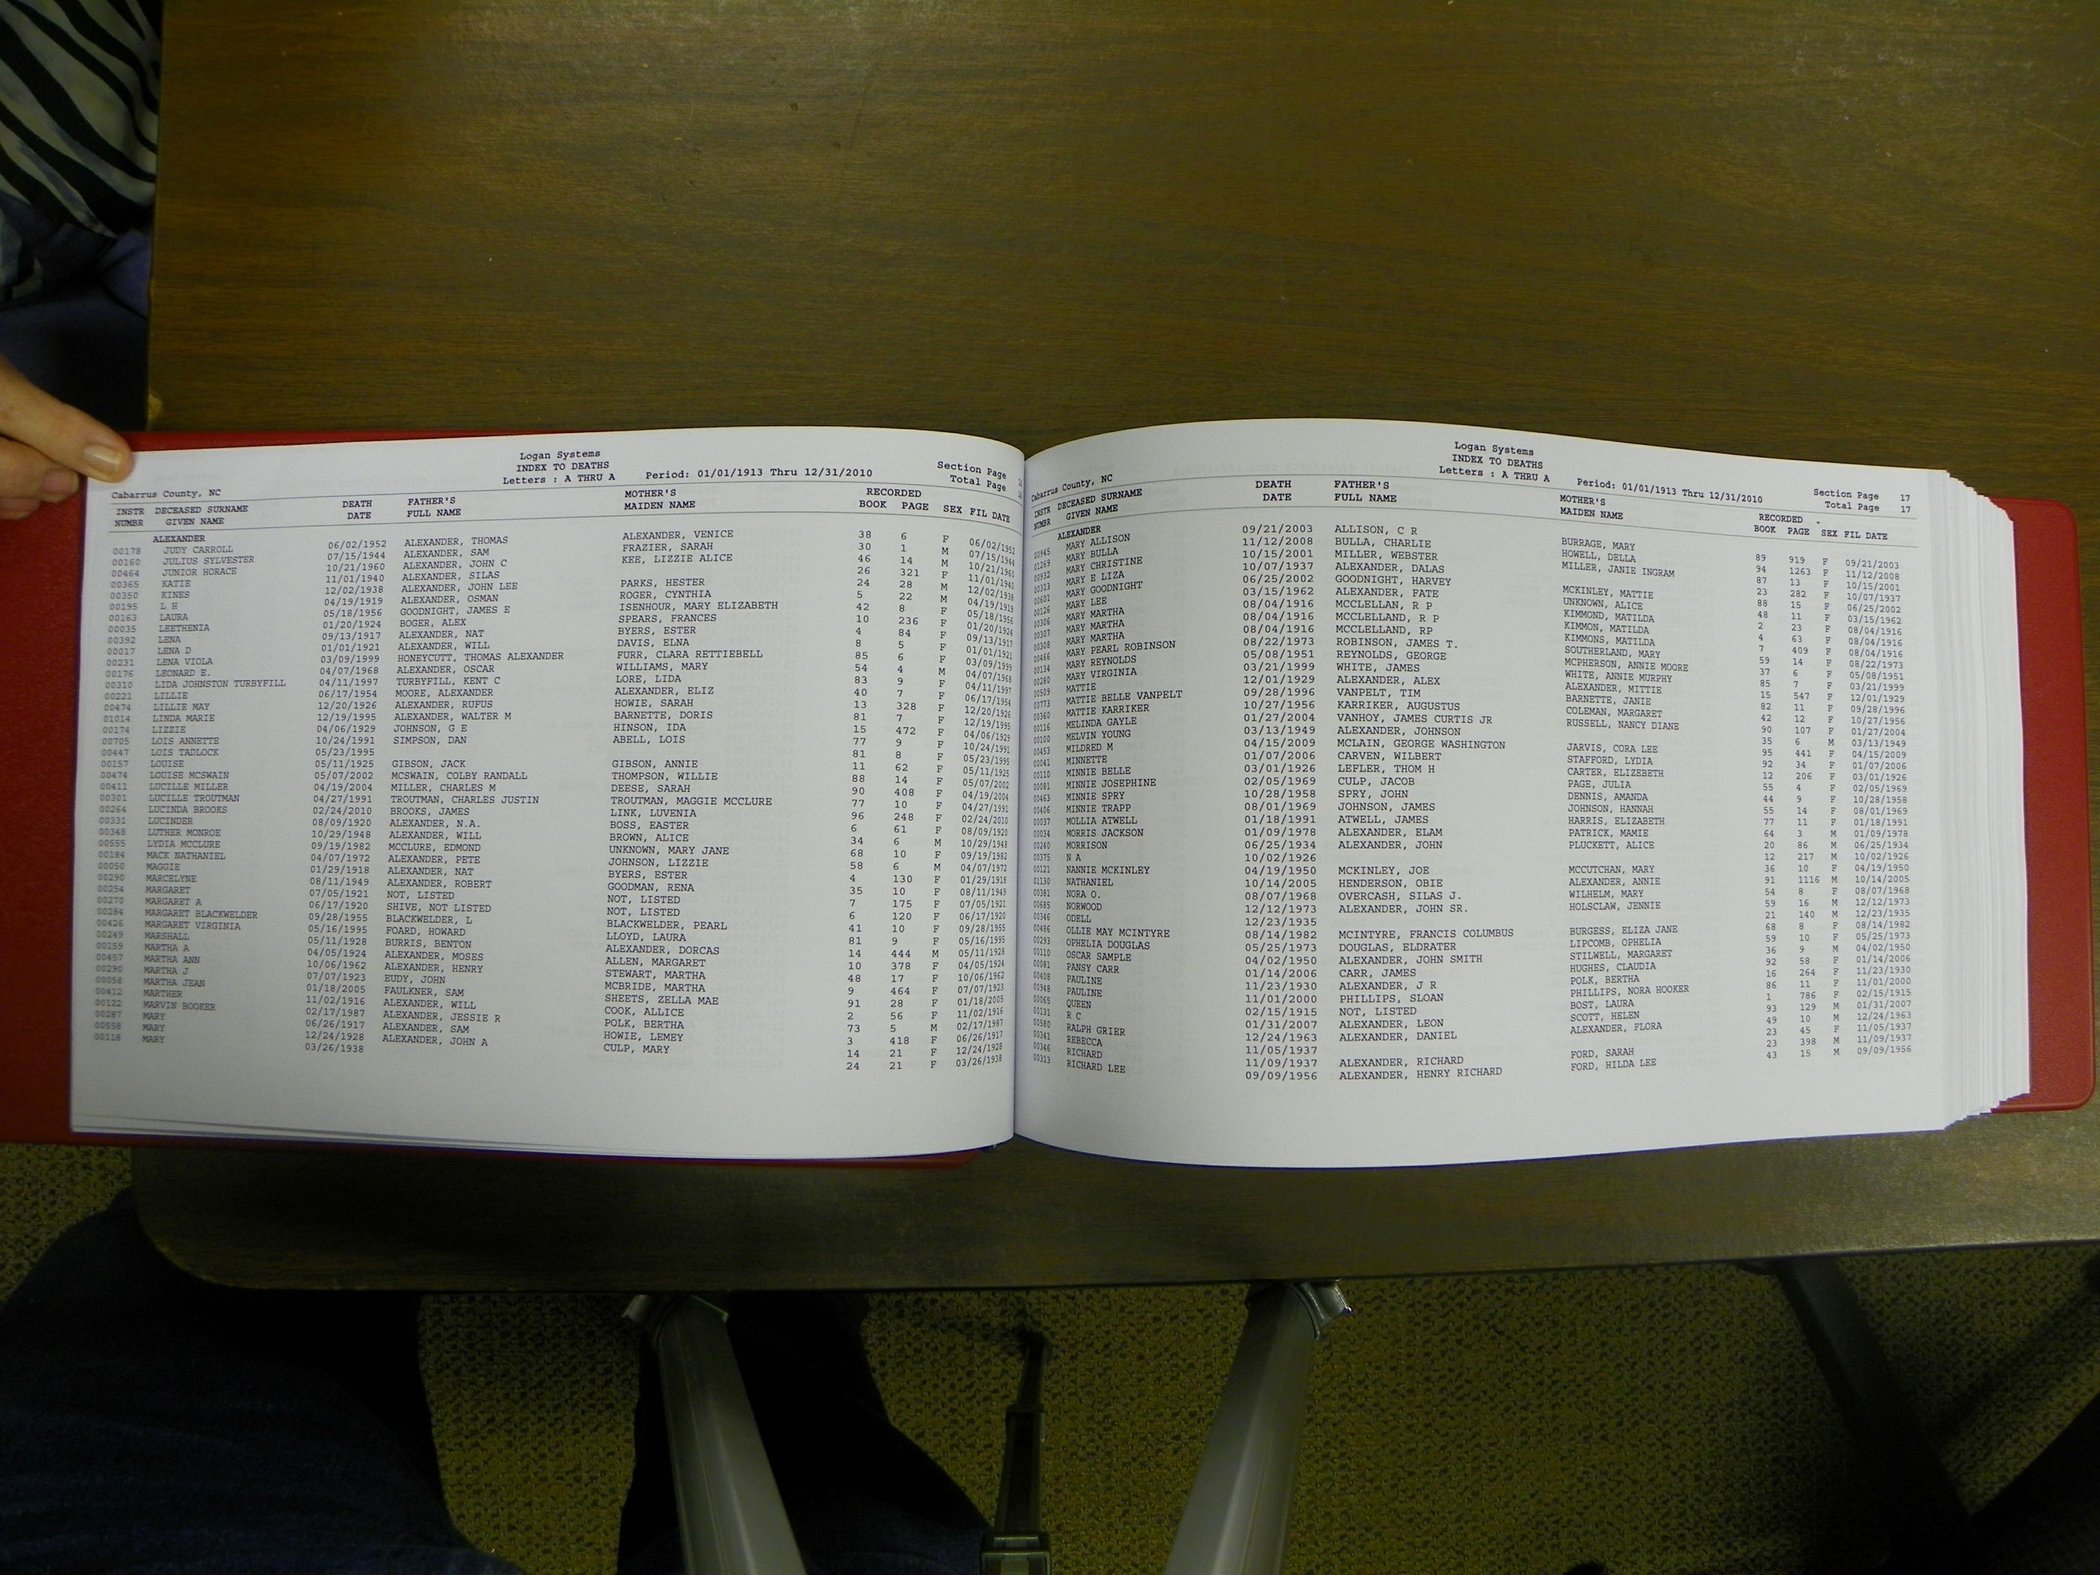 Logan Systems
INDEX TO DEATHS
Cabarrus County, NC Letters : A THRU A Period: 01/01/1913 Thru 12/31/2010 Section Page
Total Page
INSTR DECEASED SURNAME DEATH FATHER'S MOTHER'S RECORDED
NUMBR GIVEN NAME DATE FULL NAME MAIDEN NAME BOOK PAGE SEX FIL DATE
ALEXANDER
00178 JUDY CARROLL 06/02/1952 ALEXANDER, THOMAS ALEXANDER, VENICE 38 6 F 06/02/1952
00160 JULIUS SYLVESTER 07/15/1944 ALEXANDER, SAM FRAZIER, SARAH 30 1 M 07/15/1944
00464 JUNIOR HORACE 10/21/1960 ALEXANDER, JOHN C KEE, LIZZIE ALICE 46 14 M 10/21/1960
00365 KATIE 11/01/1940 ALEXANDER, SILAS 26 321 F 11/01/1940
00350 KINES 12/02/1938 ALEXANDER, JOHN LEE PARKS, HESTER 24 28 M 12/02/1938
00195 L H 04/19/1919 ALEXANDER, OSMAN ROGER, CYNTHIA 5 22 M 04/19/1919
00163 LAURA 05/18/1956 GOODNIGHT, JAMES E ISENHOUR, MARY ELIZABETH 42 8 F 05/18/1956
00035 LEETHENIA 01/20/1924 BOGER, ALEX SPEARS, FRANCES 10 236 F 01/20/1924
00392 LENA 09/13/1917 ALEXANDER, NAT BYERS, ESTER 4 84 F 09/13/1917
00017 LENA D 01/01/1921 ALEXANDER, WILL DAVIS, ELNA 8 5 F 01/01/1921
00231 LENA VIOLA 03/09/1999 HONEYCUTT, THOMAS ALEXANDER FURR, CLARA RETTIEBELL 85 6 F 03/09/1999
00176 LEONARD E. 04/07/1968 ALEXANDER, OSCAR WILLIAMS, MARY 54 4 M 04/07/1968
00310 LIDA JOHNSTON TURBYFILL 04/11/1997 TURBYFILL, KENT C LORE, LIDA 83 9 F 04/11/1997
00221 LILLIE 06/17/1954 MOORE, ALEXANDER ALEXANDER, ELIZ 40 7 F 06/17/1954
00474 LILLIE MAY 12/20/1926 ALEXANDER, RUFUS HOWIE, SARAH 13 328 F 12/20/1926
01014 LINDA MARIE 12/19/1995 ALEXANDER, WALTER M BARNETTE, DORIS 81 7 F 12/19/1995
00174 LIZZIE 04/06/1929 JOHNSON, G E HINSON, IDA 15 472 F 04/06/1929
00705 LOIS ANNETTE 10/24/1991 SIMPSON, DAN ABELL, LOIS 77 9 F 10/24/1991
00447 LOIS TADLOCK 05/23/1995 81 8 F 05/23/1995
00157 LOUISE 05/11/1925 GIBSON, JACK GIBSON, ANNIE 11 62 F 05/11/1925
00474 LOUISE MCSWAIN 05/07/2002 MCSWAIN, COLBY RANDALL THOMPSON, WILLIE 88 14 F 05/07/2002
00411 LUCILLE MILLER 04/19/2004 MILLER, CHARLES M DEESE, SARAH 90 408 F 04/19/2004
00301 LUCILLE TROUTMAN 04/27/1991 TROUTMAN, CHARLES JUSTIN TROUTMAN, MAGGIE MCCLURE 77 10 F 04/27/1991
00264 LUCINDA BROOKS 02/24/2010 BROOKS, JAMES LINK, LUVENIA 96 248 F 02/24/2010
00331 LUCINDER 08/09/1920 ALEXANDER, N.A. BOSS, EASTER 6 61 F 08/09/1920
00348 LUTHER MONROE 10/29/1948 ALEXANDER, WILL BROWN, ALICE 34 6 M 10/29/1948
00555 LYDIA MCCLURE 09/19/1982 MCCLURE, EDMOND UNKNOWN, MARY JANE 68 10 F 09/19/1982
00184 MACK NATHANIEL 04/07/1972 ALEXANDER, PETE JOHNSON, LIZZIE 58 6 M 04/07/1972
00050 MAGGIE 01/29/1918 ALEXANDER, NAT BYERS, ESTER 4 130 F 01/29/1918
00290 MARCELYNE 08/11/1949 ALEXANDER, ROBERT GOODMAN, RENA 35 10 F 08/11/1949
00254 MARGARET 07/05/1921 NOT, LISTED NOT, LISTED 7 175 F 07/05/1921
00270 MARGARET A 06/17/1920 SHIVE, NOT LISTED NOT, LISTED 6 120 F 06/17/1920
00284 MARGARET BLACKWELDER 09/28/1955 BLACKWELDER, L BLACKWELDER, PEARL 41 10 F 09/28/1955
00426 MARGARET VIRGINIA 05/16/1995 FOARD, HOWARD LLOYD, LAURA 81 9 F 05/16/1995
00249 MARSHALL 05/11/1928 BURRIS, BENTON ALEXANDER, DORCAS 14 444 M 05/11/1928
00159 MARTHA A 04/05/1924 ALEXANDER, MOSES ALLEN, MARGARET 10 378 F 04/05/1924
00457 MARTHA ANN 10/06/1962 ALEXANDER, HENRY STEWART, MARTHA 48 17 F 10/06/1962
00290 MARTHA J 07/07/1923 EUDY, JOHN MCBRIDE, MARTHA 9 464 F 07/07/1923
00058 MARTHA JEAN 01/18/2005 FAULKNER, SAM SHEETS, ZELLA MAE 91 28 F 01/18/2005
00412 MARTHER 11/02/1916 ALEXANDER, WILL COOK, ALLICE 2 56 F 11/02/1916
00122 MARVIN BOOKER 02/17/1987 ALEXANDER, JESSIE R POLK, BERTHA 73 5 M 02/17/1987
00287 MARY 06/26/1917 ALEXANDER, SAM HOWIE, LEMEY 3 418 F 06/26/1917
00558 MARY 12/24/1928 ALEXANDER, JOHN A CULP, MARY 14 21 F 12/24/1928
00118 MARY 03/26/1938 24 21 F 03/26/1938
Logan Systems
INDEX TO DEATHS
Cabarrus County, NC Letters : A THRU A Period: 01/01/1913 Thru 12/31/2010 Section Page 17
Total Page 17
INSTR DECEASED SURNAME DEATH FATHER'S MOTHER'S RECORDED
NUMBR GIVEN NAME DATE FULL NAME MAIDEN NAME BOOK PAGE SEX FIL DATE
ALEXANDER
00945 MARY ALLISON 09/21/2003 ALLISON, C R BURRAGE, MARY 89 919 F 09/21/2003
01269 MARY BULLA 11/12/2008 BULLA, CHARLIE HOWELL, DELLA 94 1263 F 11/12/2008
00932 MARY CHRISTINE 10/15/2001 MILLER, WEBSTER MILLER, JANIE INGRAM 87 13 F 10/15/2001
00313 MARY E LIZA 10/07/1937 ALEXANDER, DALAS 23 282 F 10/07/1937
00601 MARY GOODNIGHT 06/25/2002 GOODNIGHT, HARVEY MCKINLEY, MATTIE 88 15 F 06/25/2002
00126 MARY LEE 03/15/1962 ALEXANDER, FATE UNKNOWN, ALICE 48 11 F 03/15/1962
00306 MARY MARTHA 08/04/1916 MCCLELLAN, R P KIMMOND, MATILDA 2 23 F 08/04/1916
00307 MARY MARTHA 08/04/1916 MCCLELLAND, R P KIMMON, MATILDA 4 63 F 08/04/1916
00308 MARY MARTHA 08/04/1916 MCCLELLAND, RP KIMMONS, MATILDA 7 409 F 08/04/1916
00466 MARY PEARL ROBINSON 08/22/1973 ROBINSON, JAMES T. SOUTHERLAND, MARY 59 14 F 08/22/1973
00134 MARY REYNOLDS 05/08/1951 REYNOLDS, GEORGE MCPHERSON, ANNIE MOORE 37 6 F 05/08/1951
00280 MARY VIRGINIA 03/21/1999 WHITE, JAMES WHITE, ANNIE MURPHY 85 7 F 03/21/1999
00509 MATTIE 12/01/1929 ALEXANDER, ALEX ALEXANDER, MITTIE 15 547 F 12/01/1929
00773 MATTIE BELLE VANPELT 09/28/1996 VANPELT, TIM BARNETTE, JANIE 82 11 F 09/28/1996
00360 MATTIE KARRIKER 10/27/1956 KARRIKER, AUGUSTUS COLEMAN, MARGARET 42 12 F 10/27/1956
00116 MELINDA GAYLE 01/27/2004 VANHOY, JAMES CURTIS JR RUSSELL, NANCY DIANE 90 107 F 01/27/2004
00100 MELVIN YOUNG 03/13/1949 ALEXANDER, JOHNSON 35 6 M 03/13/1949
00453 MILDRED M 04/15/2009 MCLAIN, GEORGE WASHINGTON JARVIS, CORA LEE 95 441 F 04/15/2009
00041 MINNETTE 01/07/2006 CARVEN, WILBERT STAFFORD, LYDIA 92 34 F 01/07/2006
00110 MINNIE BELLE 03/01/1926 LEFLER, THOM H CARTER, ELIZEBETH 12 206 F 03/01/1926
00081 MINNIE JOSEPHINE 02/05/1969 CULP, JACOB PAGE, JULIA 55 4 F 02/05/1969
00463 MINNIE SPRY 10/28/1958 SPRY, JOHN DENNIS, AMANDA 44 9 F 10/28/1958
00406 MINNIE TRAPP 08/01/1969 JOHNSON, JAMES JOHNSON, HANNAH 55 14 F 08/01/1969
00037 MOLLIA ATWELL 01/18/1991 ATWELL, JAMES HARRIS, ELIZABETH 77 11 F 01/18/1991
00034 MORRIS JACKSON 01/09/1978 ALEXANDER, ELAM PATRICK, MAMIE 64 3 M 01/09/1978
00240 MORRISON 06/25/1934 ALEXANDER, JOHN PLUCKETT, ALICE 20 86 M 06/25/1934
00375 N A 10/02/1926 12 217 M 10/02/1926
00121 NANNIE MCKINLEY 04/19/1950 MCKINLEY, JOE MCCUTCHAN, MARY 36 10 F 04/19/1950
01130 NATHANIEL 10/14/2005 HENDERSON, OBIE ALEXANDER, ANNIE 91 1116 M 10/14/2005
00381 NORA O. 08/07/1968 OVERCASH, SILAS J. WILHELM, MARY 54 8 F 08/07/1968
00685 NORWOOD 12/12/1973 ALEXANDER, JOHN SR. HOLSCLAW, JENNIE 59 16 M 12/12/1973
00346 ODELL 12/23/1935 21 140 M 12/23/1935
00486 OLLIE MAY MCINTYRE 08/14/1982 MCINTYRE, FRANCIS COLUMBUS BURGESS, ELIZA JANE 68 8 F 08/14/1982
00293 OPHELIA DOUGLAS 05/25/1973 DOUGLAS, ELDRATER LIPCOMB, OPHELIA 59 10 F 05/25/1973
00110 OSCAR SAMPLE 04/02/1950 ALEXANDER, JOHN SMITH STILWELL, MARGARET 36 9 M 04/02/1950
00081 PANSY CARR 01/14/2006 CARR, JAMES HUGHES, CLAUDIA 92 58 F 01/14/2006
00408 PAULINE 11/23/1930 ALEXANDER, J R POLK, BERTHA 16 264 F 11/23/1930
00948 PAULINE 11/01/2000 PHILLIPS, SLOAN PHILLIPS, NORA HOOKER 86 11 F 11/01/2000
00065 QUEEN 02/15/1915 NOT, LISTED BOST, LAURA 1 786 F 02/15/1915
00131 R C 01/31/2007 ALEXANDER, LEON SCOTT, HELEN 93 129 M 01/31/2007
00580 RALPH GRIER 12/24/1963 ALEXANDER, DANIEL ALEXANDER, FLORA 49 10 M 12/24/1963
00341 REBECCA 11/05/1937 23 45 F 11/05/1937
00346 RICHARD 11/09/1937 ALEXANDER, RICHARD FORD, SARAH 23 398 M 11/09/1937
00313 RICHARD LEE 09/09/1956 ALEXANDER, HENRY RICHARD FORD, HILDA LEE 43 15 M 09/09/1956